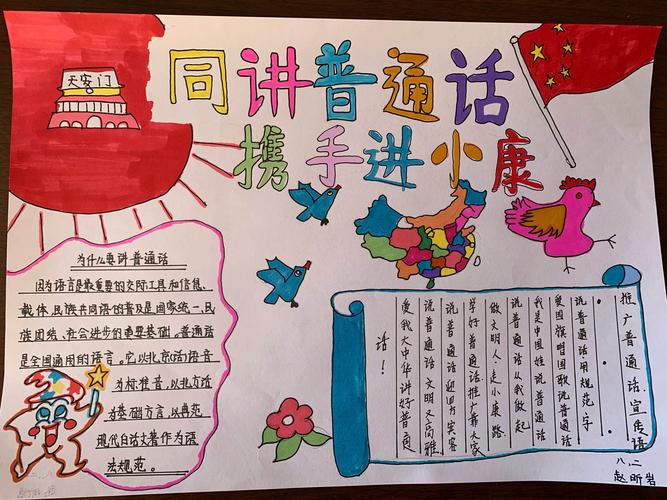 同讲普通话
携手进小康
天安门
为什么要讲普通话
因为语言是最重要的交际工具和信息
载体,民族共同语的普及是国家统一、民
族团结、社会进步的重要基础。普通话
是全国通用的语言。它以北京(话)语音
为标准音,以北方话
为基础方言,以典范
现代白话文著作为语
法规范。
推广普通话宣传语
说普通话,用规范字
爱国旗唱国歌说普通话
我是中国娃说普通话
说普通话从我做起
做文明人,走小康路
学好普通话推广靠大家
说普通话迎四方宾客
说普通话文明又高雅
爱我大中华讲好普通
话!
八、二
赵昕岩